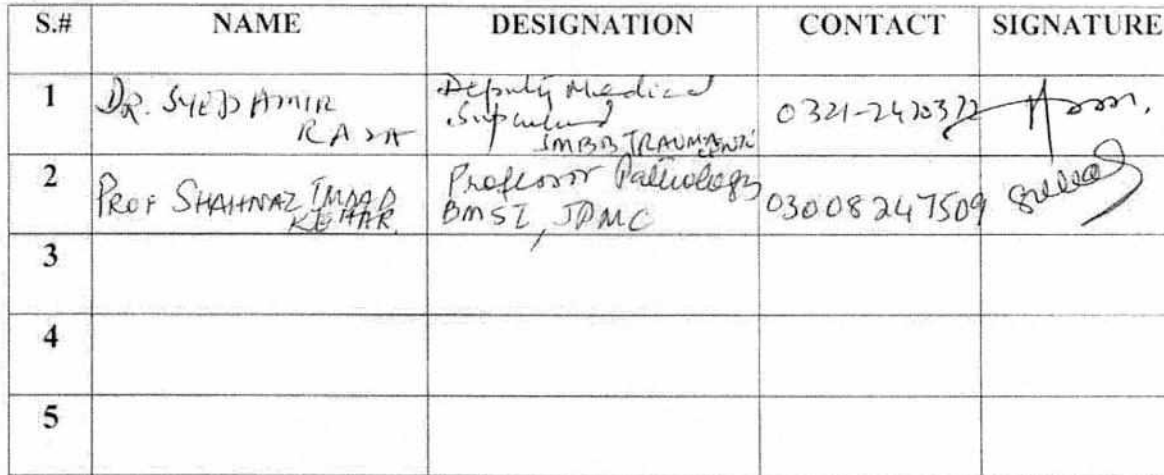 S.# NAME DESIGNATION CONTACT SIGNATURE
1 DR. SYED AMIR
RAZA
Deputy Medical
SMBB TRAUMA
0321-2470372
2 PROF SHAHNAZ IMDAD
KEHAR.
Professor Pathology
BMSI, JPMC
03008247509
3
4
5